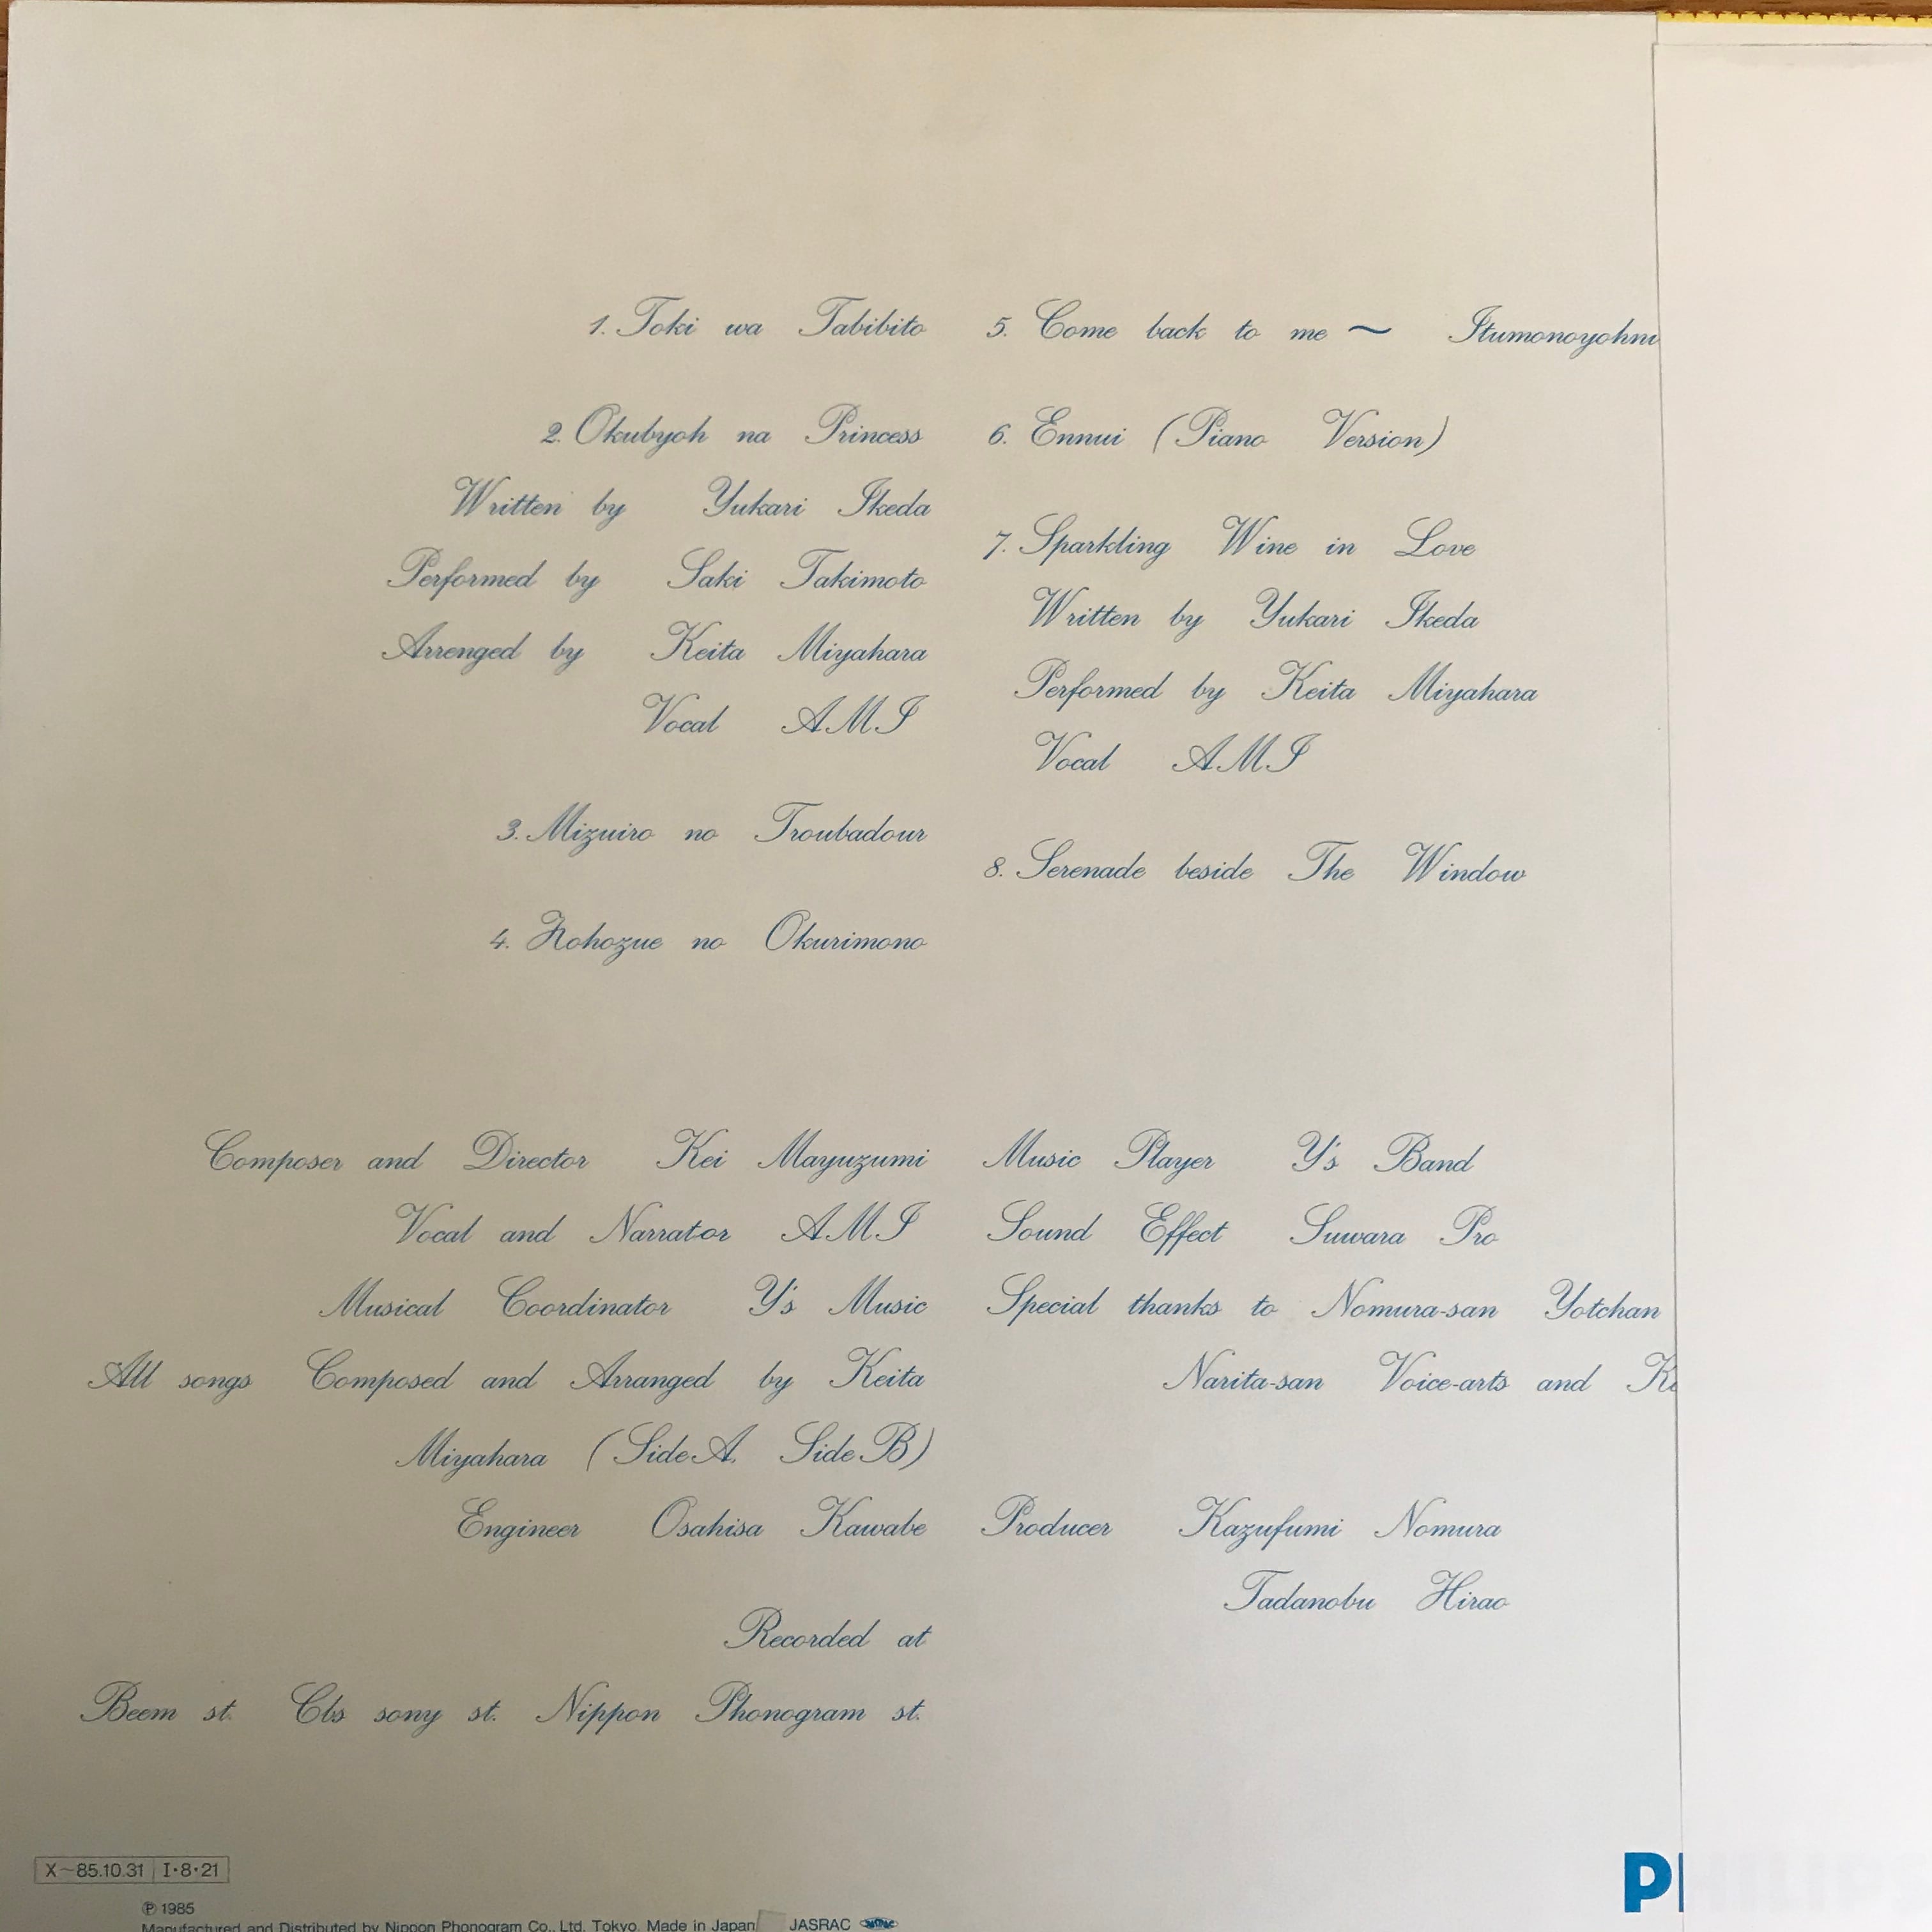 1. Toki wa Tabibito
2. Okubyoh na Princess
Written by Yukari Ikeda
Performed by Saki Takimoto
Arrenged by Keita Miyahara
Vocal AMI
3. Mizuiro no Troubadour
4. Hohozue no Okurimono
5. Come back to me ~ Itumonoyohni
6. Ennui (Piano Version)
7. Sparkling Wine in Love
Written by Yukari Ikeda
Performed by Keita Miyahara
Vocal AMI
8. Serenade beside The Window
Composer and Director Kei Mayuzumi
Vocal and Narrator AMI
Musical Coordinator Y's Music
All songs Composed and Arranged by Keita
Miyahara (Side A, Side B)
Engineer Osahisa Kawabe
Recorded at
Beem st. Cbs sony st. Nippon Phonogram st.
Music Player Y's Band
Sound Effect Suwara Pro
Special thanks to Nomura-san Yotchan
Narita-san Voice-arts and
Producer Kazufumi Nomura
Tadanobu Hirao
X-85.10.31 I·8·21
℗ 1985
Manufactured and Distributed by Nippon Phonogram Co., Ltd. Tokyo. Made in Japan JASRAC